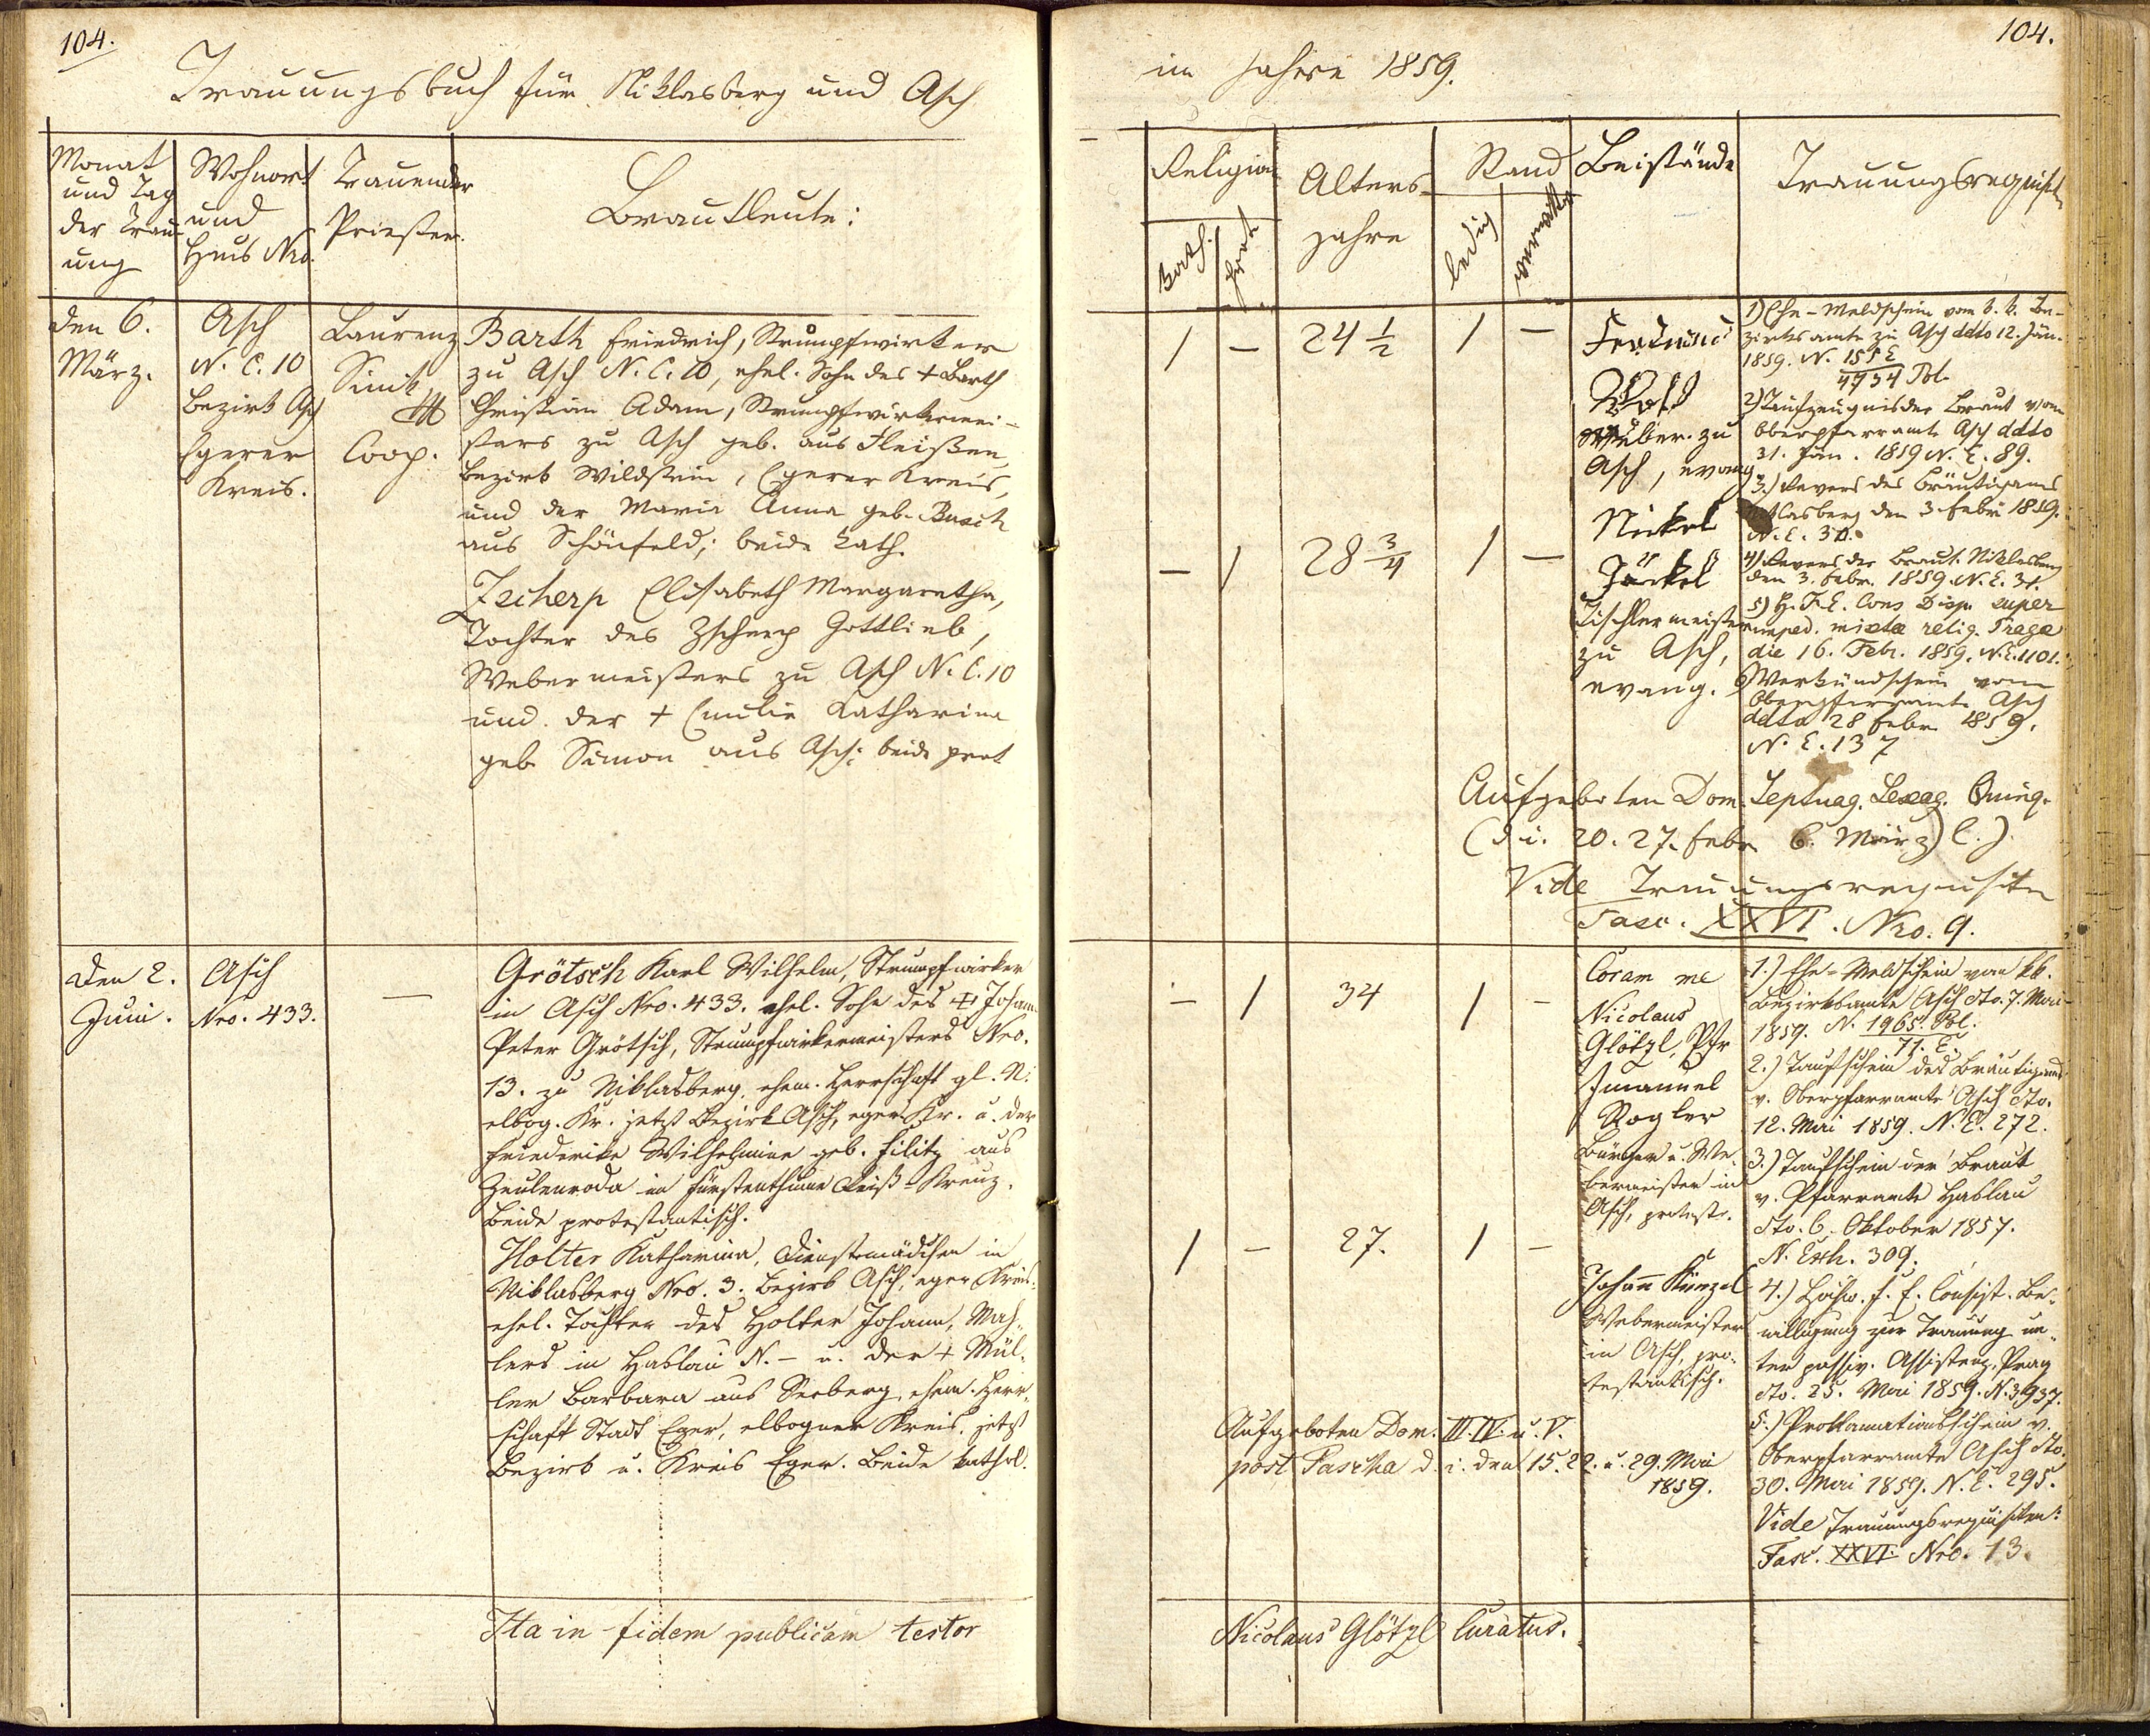 104.
Trauungsbuch für Niklasberg und Asch
Monat
und Tag
der Trau-
ung
Wohnort
und
Haus Nro.
Trauender
Priester.
Brautleute:
den 6.
März.
Asch
N. C. 10
Bezirk Asch
Egerer
Kreis.
Laurenz
Coop.
Barth Friedrich, Strumpfwirker
zu Asch N. C. 10, ehel. Sohn des + Barth
Christian Adam, Strumpfwirkermei-
sters zu Asch geb. aus Fleißen,
Bezirk Wildstein, Egerer Kreis,
und der Maria Anna geb. Busch
aus Schönfeld; beide kath.
Zscherp Elisabeth Margaretha,
Tochter des Zscherp Gottlieb,
Webermeisters zu Asch N. C. 10
und der + Emilie Katharina
geb Simon aus Asch; beide prot
den 2.
Juni.
Asch
Nro. 433.
—
Grötsch Karl Wilhelm, Strumpfwirker
in Asch Nro. 433. ehel. Sohn des + Johann
Peter Grötsch, Strumpfwirkermeisters Nro.
13. zu Niklasberg, ehem. Herrschaft gl. N.
elbog. Kr. jetzt Bezirk Asch, eger Kr. u. der
Friederike Wilhelmine geb. Filitz aus
Zeulenroda im Fürstenthume Reiß-Kreuz.
Beide protestantisch.
Holter Katharina, Dienstmädchen in
Niklasberg Nro. 3. Bezirk Asch, eger Kreis.
ehel. Tochter des Holter Johann, Mah-
lers in Haslau N. — u. der + Mül-
ler Barbara aus Seeberg, ehem. Herr-
schaft Stadt Eger, elbogner Kreis, jetzt
Bezirk u. Kreis Eger. Beide kathol.
Ita in fidem publicam testor
104.
im Jahre 1859.
Religion
Kath.
Prot
Alters-
jahre
Stand
ledig
verwittw
Beistände
Trauungsrequisiten
1 — 24 1/2 1 —
— 1 28 3/4 1 —
Wolf
Weber. zu
Asch, evang
Nickel
Jäckel
Tischlermeister
zu Asch,
evang.
1) Ehe-Meldschein vom k. k. Be-
zirksamte zu Asch ddto 12. Jän.
1859. N. 155 E
4934 Pol.
2) Taufzeugnis der Braut vom
Oberpfarramte Asch ddto
31. Jän. 1859 N. E. 89.
3.) Revers des Bräutigams
Niklasberg den 3 Febr 1859.
N. E. 30.
4) Revers der Braut. Niklasberg
den 3. Febr. 1859. N. E. 31.
5) H. F. E. Cons Disp. super
imped. mixtae relig. Praga
die 16. Febr. 1859. N. E. 1101.
6) Verkündschein vom
Oberpfarramte Asch
ddto 28 Febr 1859.
N. E. 137
Aufgeboten Dom. Septuag. Sexag. Quinq.
(d. i. 20. 27. Febr 6. März)
Vide Trauungsrequisiten
Fasc. XXVI. Nro. 9.
— 1 34 1 —
1 — 27. 1 —
Coram me
Nicolaus
Glötzl, Pfr
Imanuel
Rogler
Bürger u. We-
bermeister in
Asch, protest.
Johann Künzel
Webermeister
in Asch, pro-
testantisch.
1.) Ehe-Meldschein von kk.
Bezirksamte Asch dto. 7. Mai
1859. N. 1965. Pol.
71. E.
2.) Taufschein des Bräutigams
v. Oberpfarramte Asch dto.
12. Mai 1859. N. E. 272.
3.) Taufschein der Braut
v. Pfarramte Haslau
dto. 6. Oktober 1857.
N. Exh. 309.
4.) Hochw. f. e. Consist. Be-
willigung zur Trauung un-
ter passiv. Assistenz. Prag
dto. 25. Mai 1859. N. 3937.
5.) Proklamationsschein v.
Oberpfarramte Asch dto.
30. Mai 1859. N. E. 295.
Vide Trauungsrequisiten:
Fasc. XXVI. Nro. 13.
Aufgeboten Dom. III. IV. u. V.
post Pascha d. i. den 15. 22. u. 29. Mai
1859.
Nicolaus Glötzl Curatus.